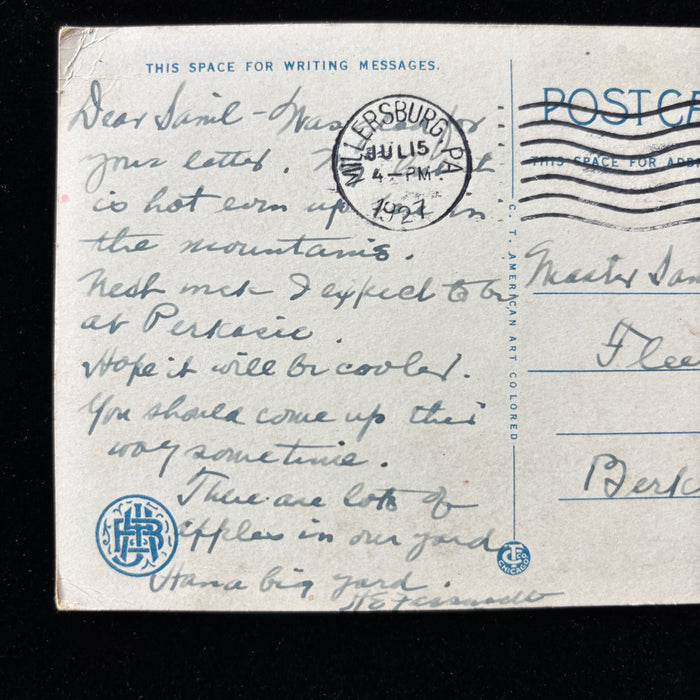 THIS SPACE FOR WRITING MESSAGES.
Dear Saml - Was glad for
your letter.
is hot even up in
the mountains.
Next week I expect to be
at Perkasie.
Hope it will be cooler.
You should come up this
way sometime.
There are lots of
apples in our yard
Have a big yard.
MILLERSBURG, PA
JUL 15
4-PM
1927
C. T. AMERICAN ART COLORED
POST CA
THIS SPACE FOR ADD
Master Sam
Flee
Berk
C T CO CHICAGO